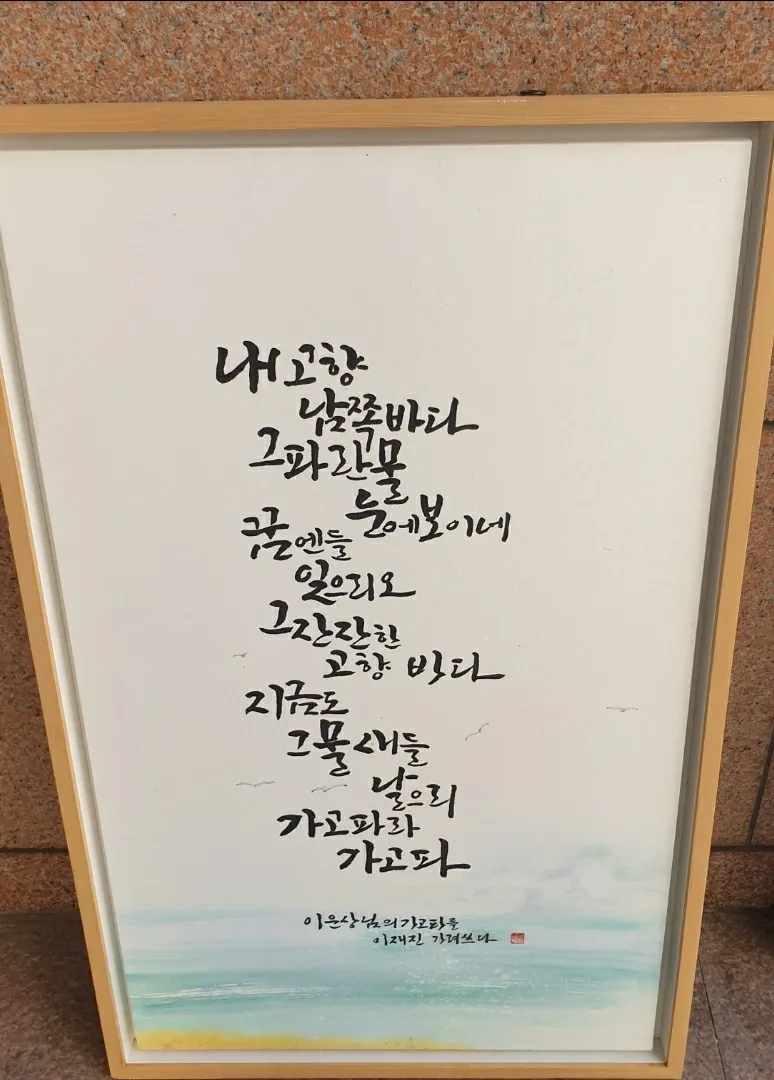 내 고향
남쪽바다
그 파란 물
눈에 보이네
꿈엔들
잊으리오
그 잔잔한
고향 바다
지금도
그 물새들
날으리
가고파라
가고파
이은상님의 가고파를
이재진 가려쓰다